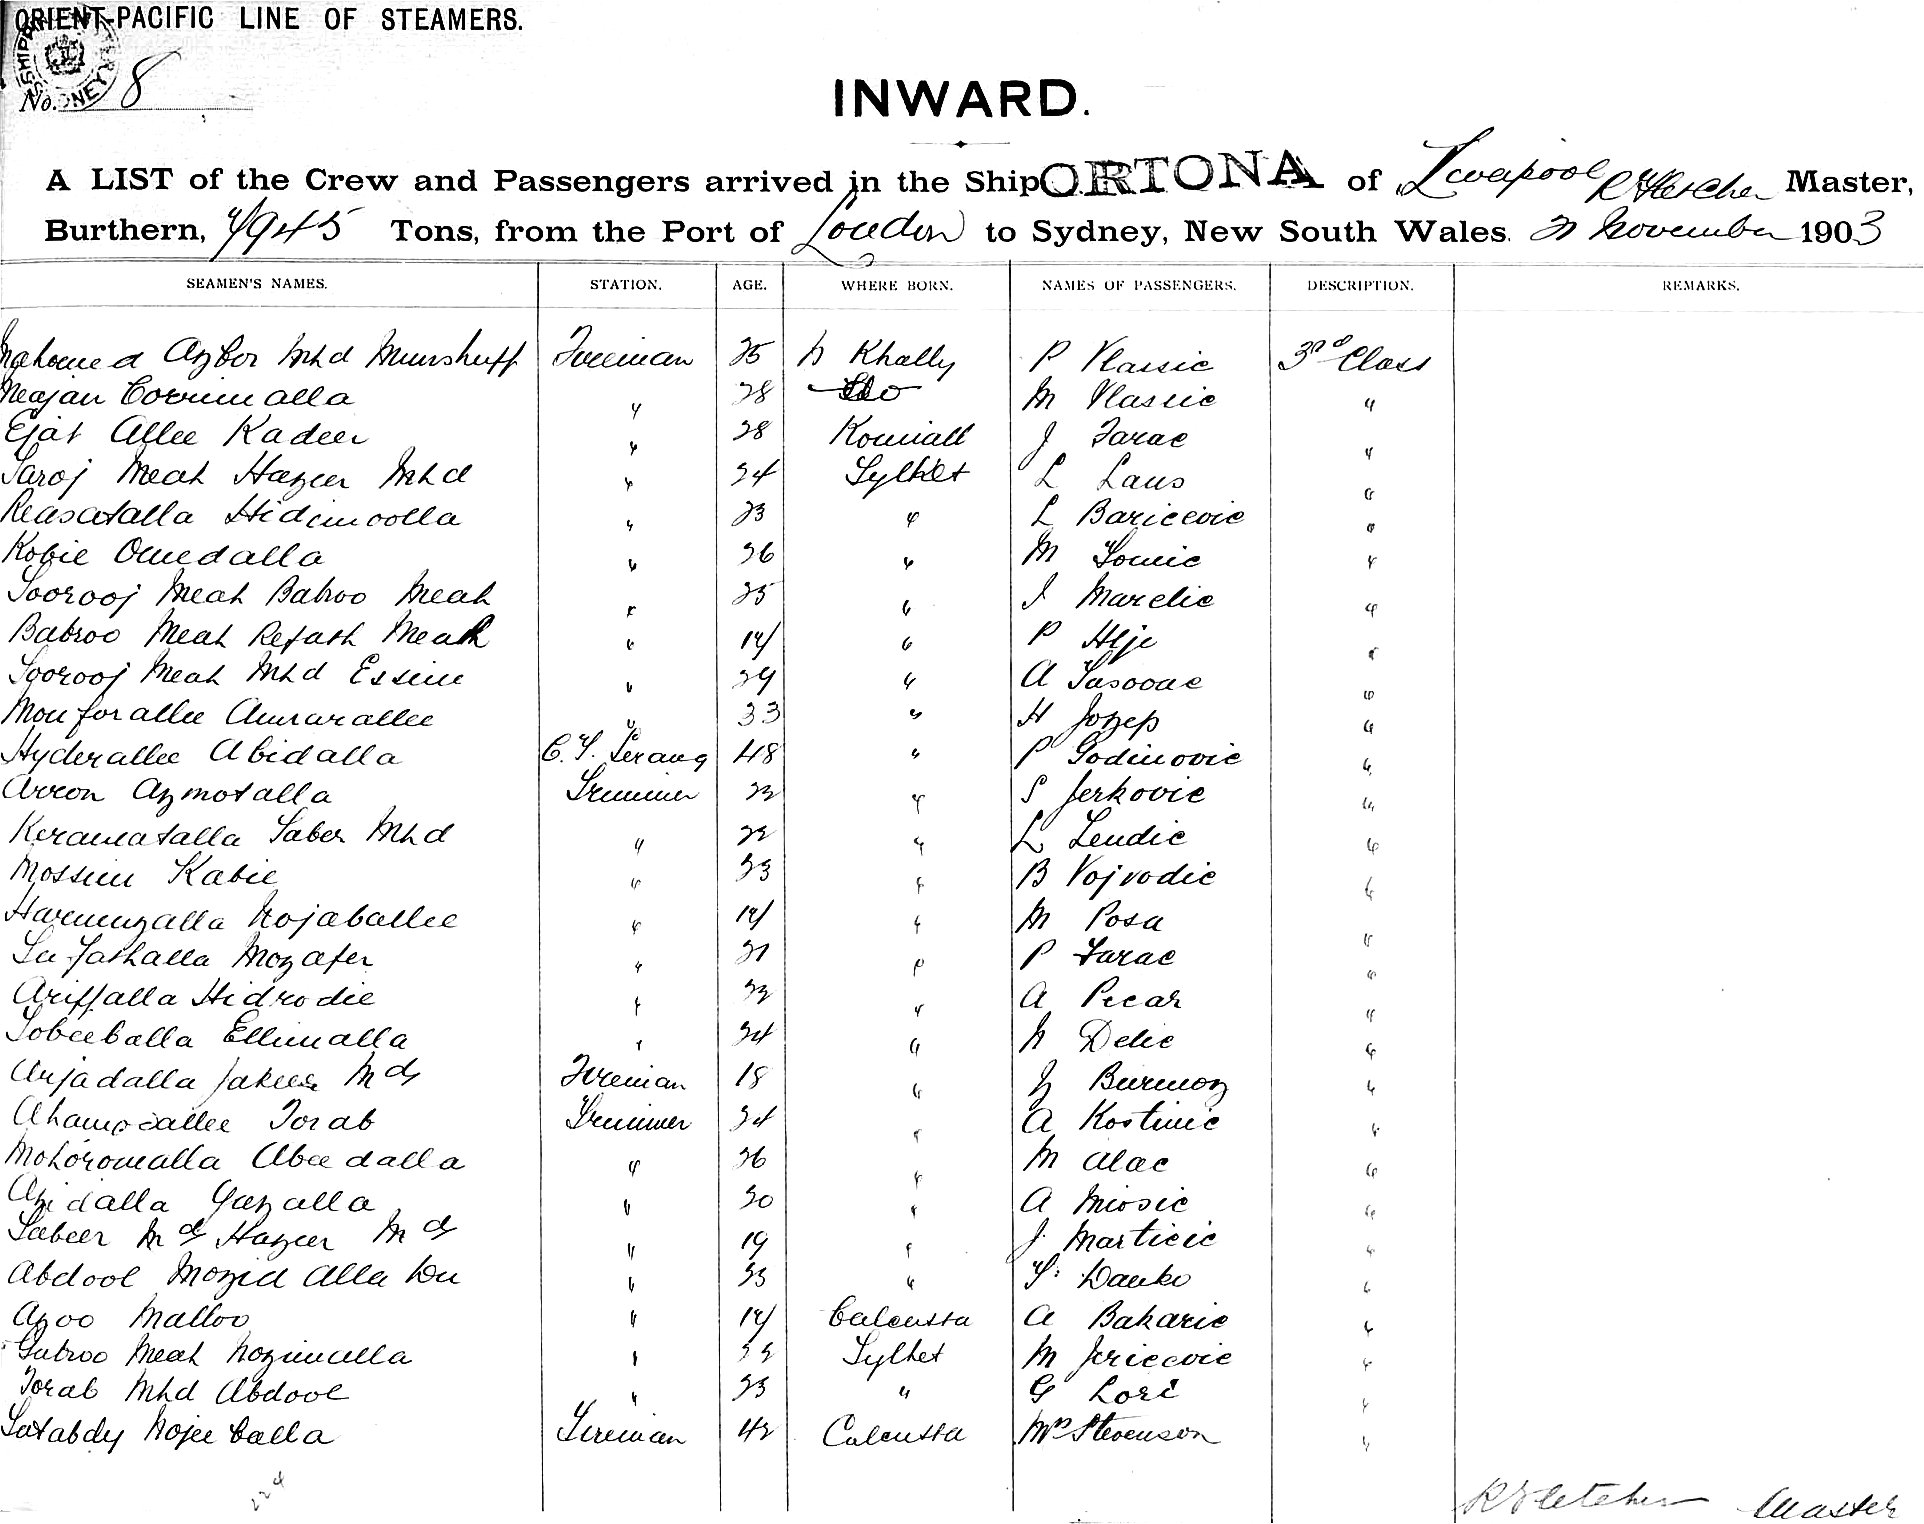 ORIENT-PACIFIC LINE OF STEAMERS.
No. 8
INWARD.
A LIST of the Crew and Passengers arrived in the Ship ORTONA of Liverpool R Fletcher Master,
Burthern, 4945 Tons, from the Port of London to Sydney, New South Wales. 21 November 1903
SEAMEN'S NAMES. STATION. AGE. WHERE BORN. NAMES OF PASSENGERS. DESCRIPTION. REMARKS.
Mahomed Azbor Mhd Munshuff Fireman 25 N Khally P Vlassic 3rd Class
Neajan Corrimalla " 28 Do M Vlassic "
Ejat Allee Kadeer " 28 J Farac "
Saroj Meah Hazeer Mhd " 24 Sylhet L Laus "
Reasatalla Hidimoolla " 23 " L Baricevic "
Kobie Omedalla " 26 " M Tomic "
Soorooj Meah Babroo Meah " 25 " I Marelic "
Babroo Meah Refath Meah " 19 " P "
Soorooj Meah Mhd Essim " 29 " A "
Monforallee Amrarallee " 33 " H Jozep "
Hyderallee Abidalla C. T. Serang 48 " P Godinovic "
Arron Azmotalla Trimmer 22 " S Jerkovic "
Keramatalla Saber Mhd " 22 " L Lendic "
Mossim Kabie " 23 " B Vojvodic "
Harmuzalla Nojaballee " 19 " M Posa "
Mozafer " 21 " P Farac "
Ariffalla Hidrodie " 22 " A Pecar "
Sobeeballa Ellimalla " 24 " N Delic "
Anjadalla Jakeer Md Fireman 18 " Burmoz "
Torab Trimmer 24 " A Kostinic "
Mohoromalla Abeedalla " 26 " M Alac "
Azidalla Gazalla " 30 " A Miosic "
Sabeer Md Hazeer Md " 19 " J. Marticic "
Abdool Mozid Alla Du " 23 " Danko "
Azoo Malloo " 19 Calcutta A Bakaric "
Gabroo Meah Nozimulla " 22 Sylhet M Jericevic "
Torab Mhd Abdool " 23 " G Lori "
Satabdy Nojeeballa Fireman 42 Calcutta Mrs Stevenson "
224
R Fletcher Master